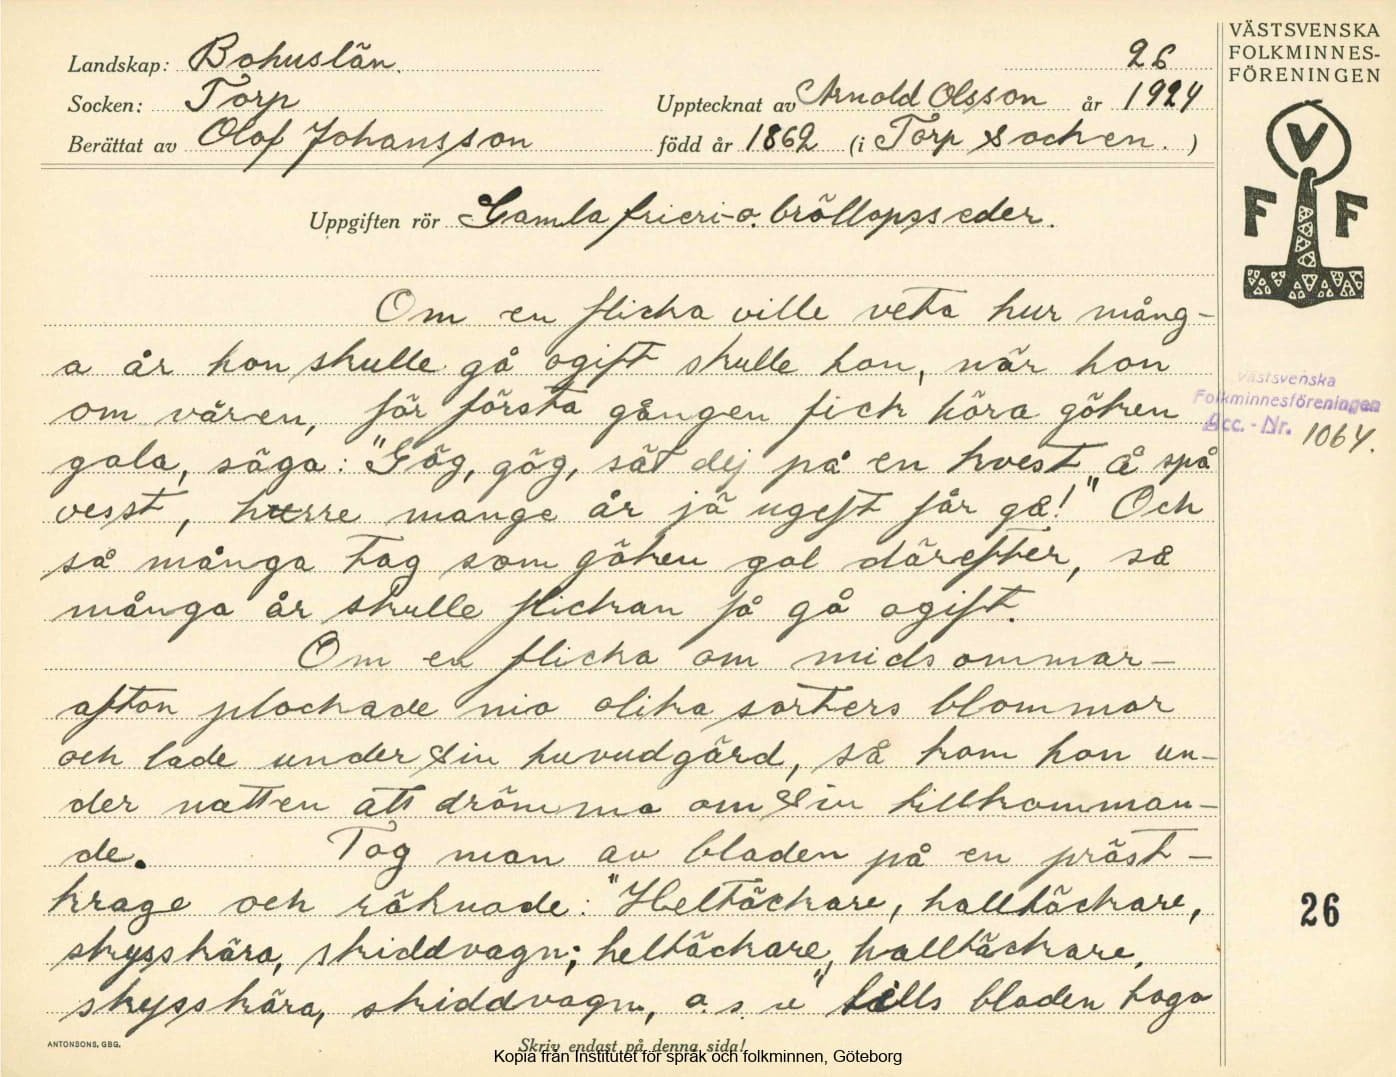 VÄSTSVENSKA
FOLKMINNES-
FÖRENINGEN
V
F F
Landskap: Bohuslän. 26
Socken: Torp Upptecknat av Arnold Olsson år 1924
Berättat av Olof Johansson född år 1862 (i Torp socken. )
Uppgiften rör Gamla frieri- o. bröllopsseder.
Om en flicka ville veta hur mång-
a år hon skulle gå ogift skulle hon, när hon
om våren, för första gången fick höra göken
gala, säga: "Gög, gög, sät dej på en kvest å spå
vesst, hurre mange år jä ugeft får gå!" Och
så många tag som göken gol därefter, så
många år skulle flickan få gå ogift.
Om en flicka om midsommar-
afton plockade nio olika sorters blommor
och lade under sin huvudgärd, så kom hon un-
der natten att drömma om sin tillkomman-
de. Tog man av bladen på en präst-
krage och räknade: "Heltäckare, halltäckare,
skysskära, skiddvagn; heltäckare, halltäckare,
skysskära, skiddvagn, o. s. v" tills bladen togo
Västsvenska
Folkminnesföreningen
Acc. - Nr. 1064.
26
ANTONSONS, GBG.
Skriv endast på denna sida!
Kopia från Institutet för språk och folkminnen, Göteborg